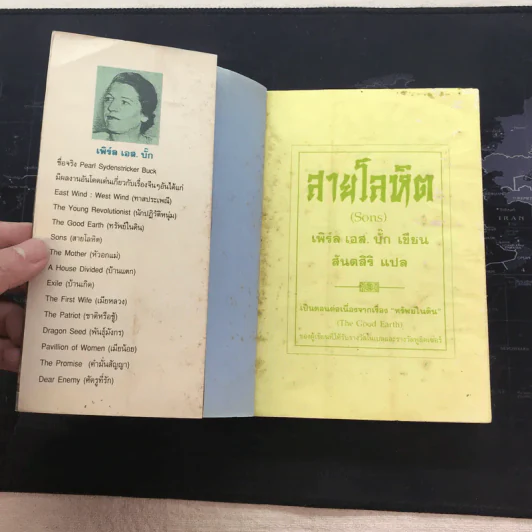 เพิร์ล เอส. บั๊ก
ชื่อจริง Pearl Sydenstricker Buck
มีผลงานอันโดดเด่นเกี่ยวกับเรื่องจีนๆอันได้แก่
East Wind : West Wind (ทาสประเพณี)
The Young Revolutionist (นักปฏิวัติหนุ่ม)
The Good Earth (ทรัพย์ในดิน)
Sons (สายโลหิต)
The Mother (หัวอกแม่)
A House Divided (บ้านแตก)
Exile (บ้านเกิด)
The First Wife (เมียหลวง)
The Patriot (ชาติหรือชู้)
Dragon Seed (พันธุ์มังกร)
Pavillion of Women (เมียน้อย)
The Promise (คำมั่นสัญญา)
Dear Enemy (ศัตรูที่รัก)
สายโลหิต
(Sons)
เพิร์ล เอส. บั๊ก เขียน
สันตสิริ แปล
เป็นตอนต่อเนื่องจากเรื่อง "ทรัพย์ในดิน"
(The Good Earth)
ของผู้เขียนที่ได้รับรางวัลโนเบลและรางวัลพูลิตเซอร์
IRAN